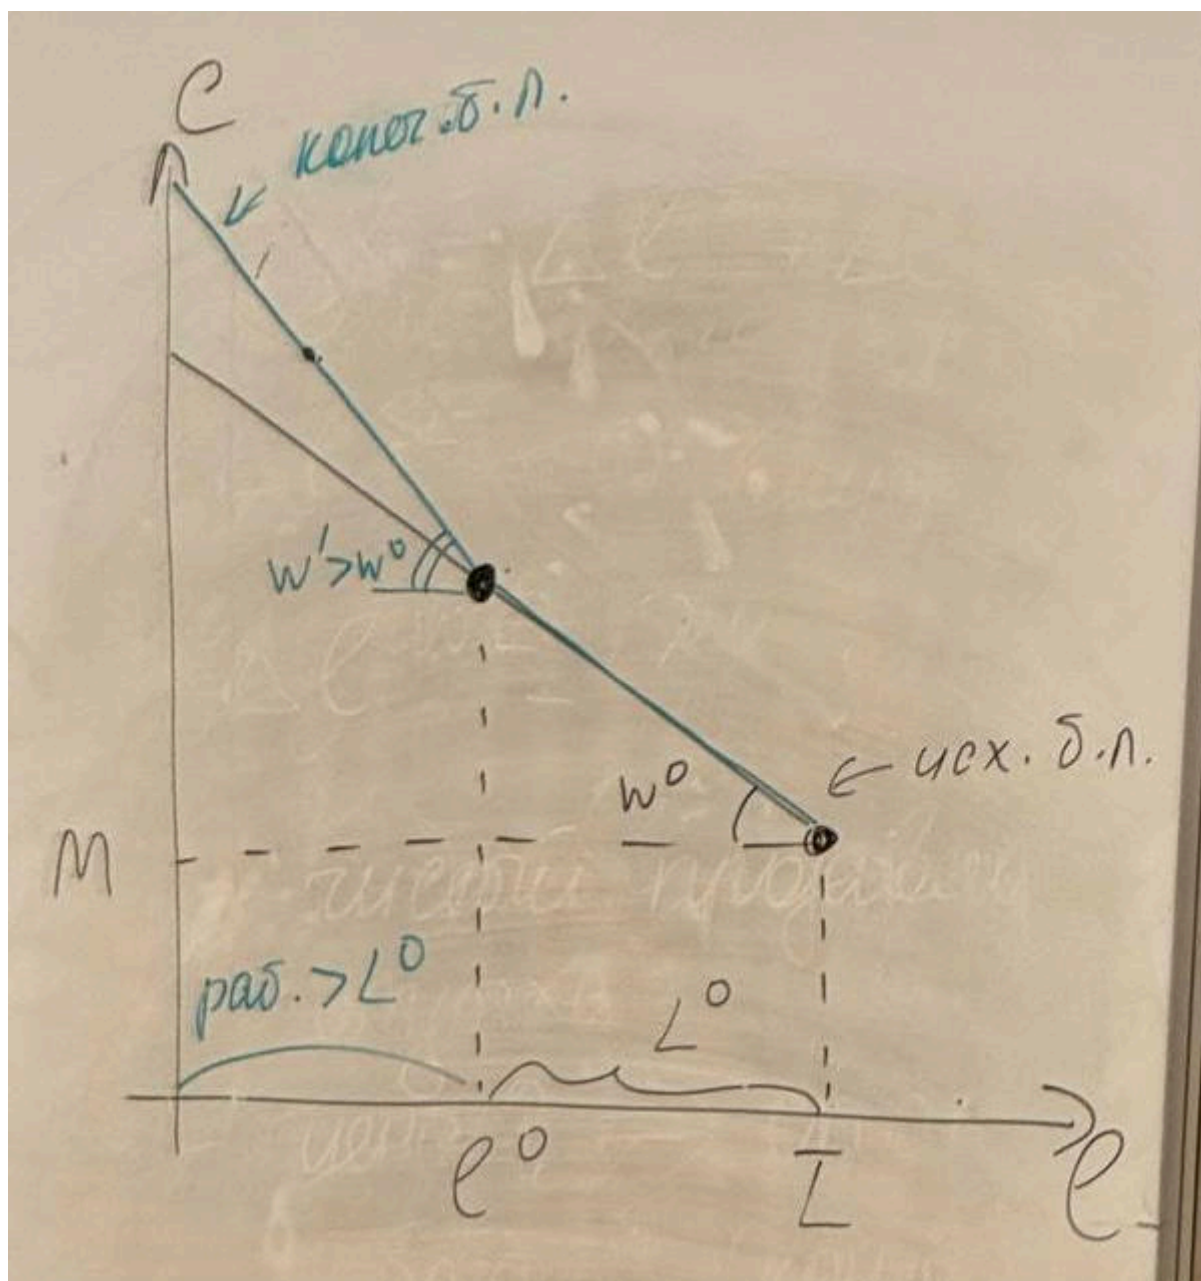 C
конеч. б. л.
w'>w⁰
w⁰
исх. б. л.
M
раб. > L⁰
L⁰
l⁰
L̅
l